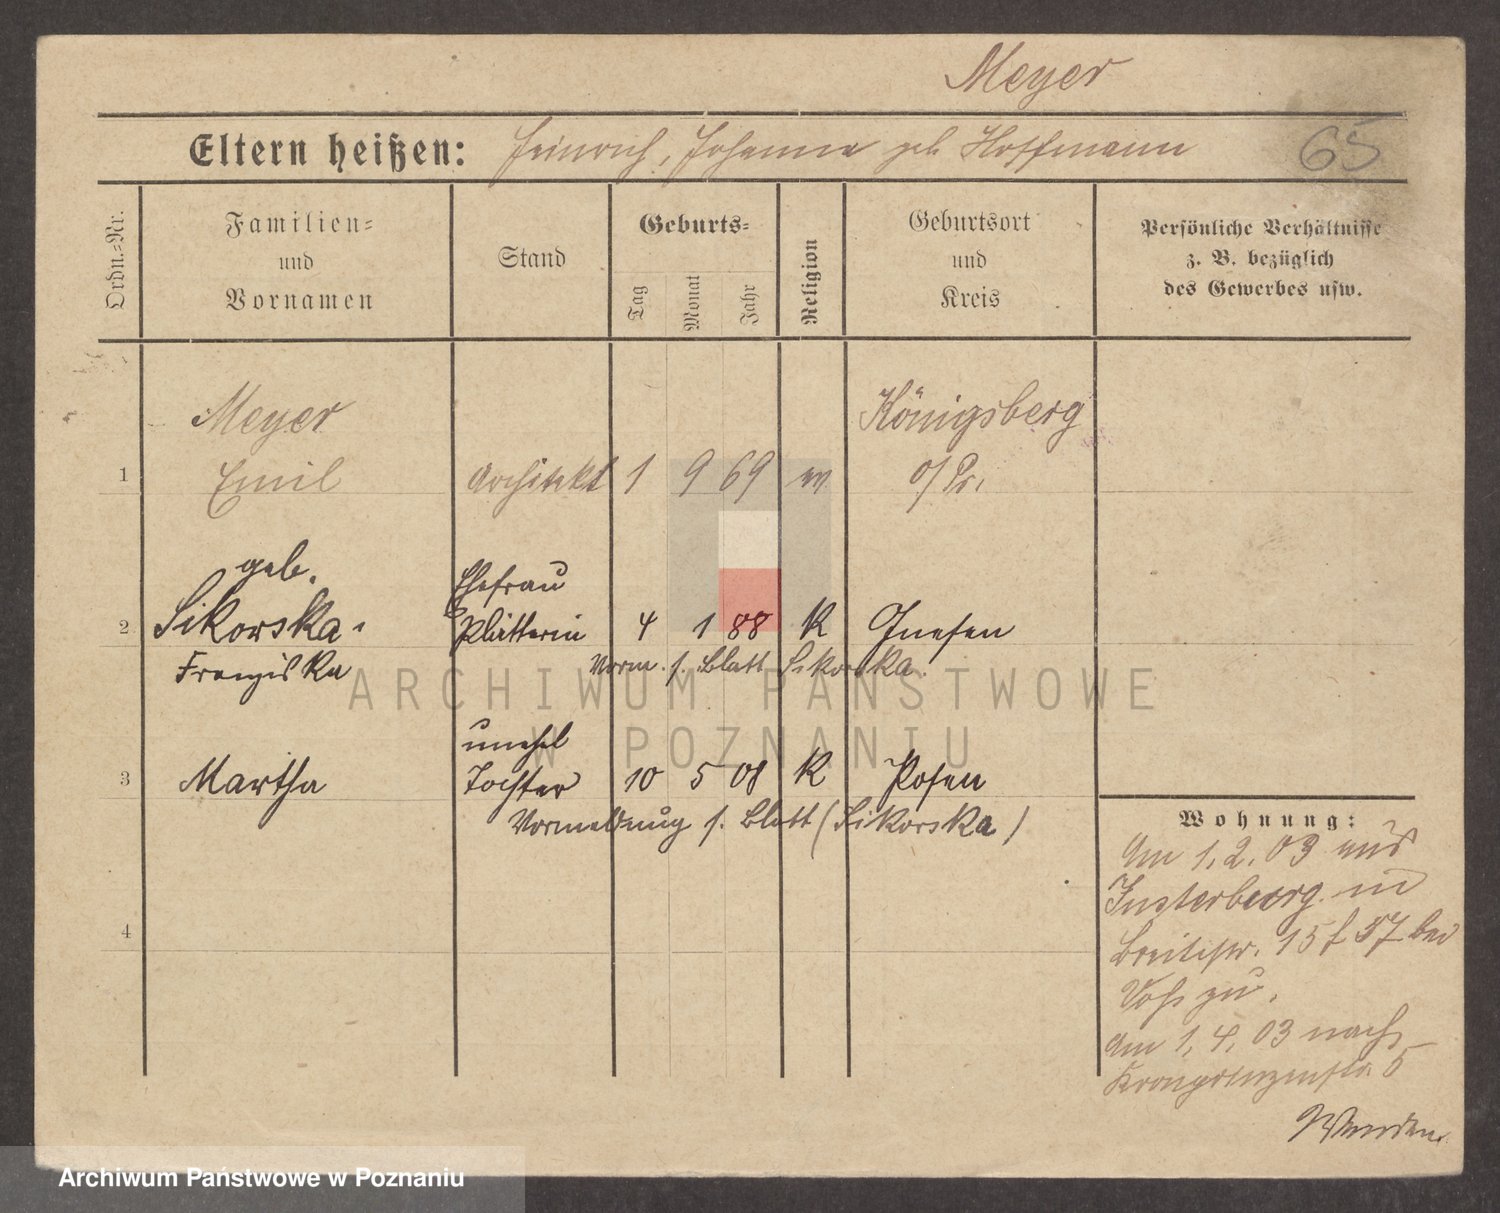 Meyer
Eltern heißen: Heinrich, Johanna geb. Hoffmann
65
Ordn.-Nr.
Familien-
und
Vornamen
Stand
Geburts-
Tag
Monat
Jahr
Religion
Geburtsort
und
Kreis
Persönliche Verhältnisse
z. B. bezüglich
des Gewerbes usw.
Meyer
Königsberg
1 Emil Architekt 1 9 69 ev o/Pr.
geb.
Ehefrau
2 Sikorska Plätterin 4 1 88 K Gnesen
Franziska Vorm. s. Blatt Sikorska.
ARCHIWUM PAŃSTWOWE
W POZNANIU
unehel
3 Martha Tochter 10 5 08 K Posen
Vormeldung s. Blatt (Sikorska)
4
Wohnung:
Am 1.2.03 aus
Insterburg in
Breitestr. 15 f 57 bei
Voß zu.
Am 1.4.03 nach
Kronprinzenstr. 5
Wenden.
Archiwum Państwowe w Poznaniu